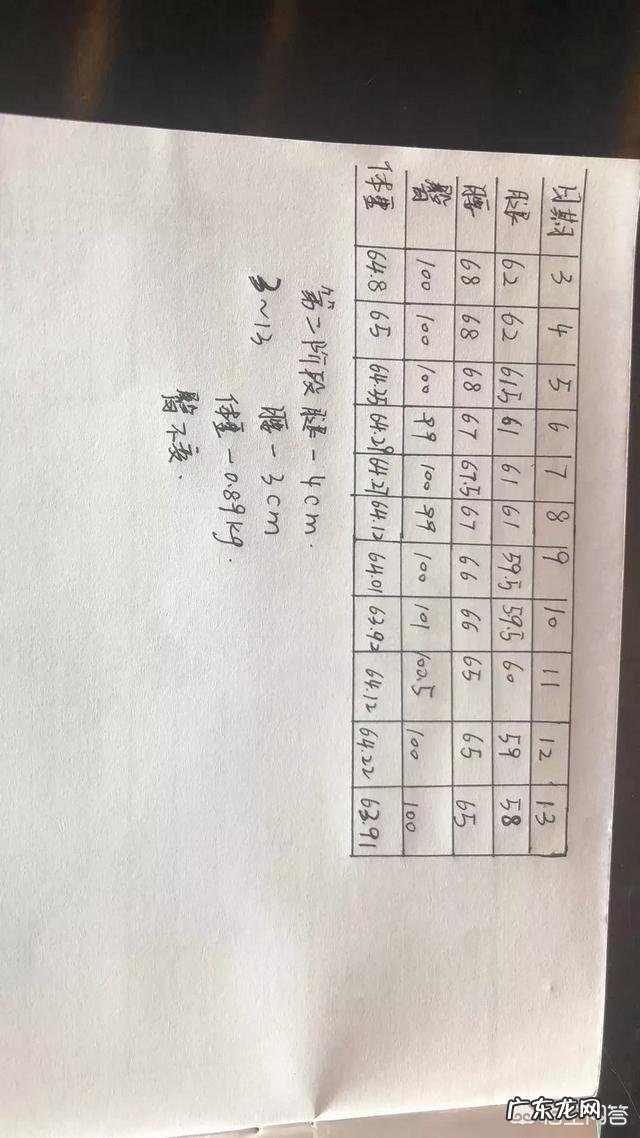 周期 3 4 5 6 7 8 9 10 11 12 13
腿 62 62 61.5 61 61 61 59.5 59.5 60 59 58
腰 68 68 68 67 67.5 67 66 66 65 65 65
臀 100 100 100 99 100 99 100 101 100.5 100 100
体重 64.8 65 64.35 64.29 64.27 64.12 64.01 63.92 64.12 64.22 63.91
第二阶段 腿 -4cm.
3~13 腰 -3cm
体重 -0.89kg.
臀不变.
广东龙网